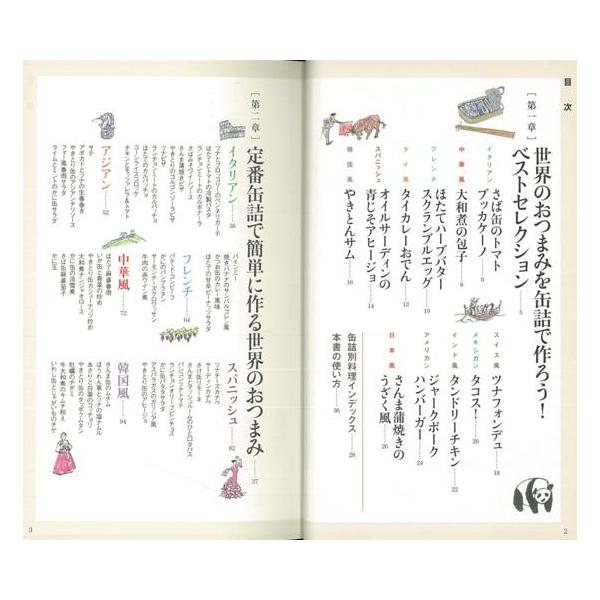 目次
[第一章]
世界のおつまみを缶詰で作ろう！
ベストセレクション……5
イタリアン
さば缶のトマト
ブッカケーノ……6
中華風
大和煮の包子……8
フレンチ
ほたてハーブバター
スクランブルエッグ……10
タイ風
タイカレーおでん……12
スパニッシュ
オイルサーディンの
青じそアヒージョ……14
韓国風
やきとんサム……16
スイス風
ツナフォンデュ……18
メキシカン
タコス！……20
インド風
タンドリーチキン……22
アメリカン
ジャークポーク
ハンバーガー……24
日本風
さんま蒲焼きの
うざく風……26
缶詰別料理インデックス……28
本書の使い方……36
2
[第二章]
定番缶詰で簡単に作る世界のおつまみ……37
イタリアン……38
ツナとブロッコリーのペンネリガーテ
ツナとトマトの冷製パスタ
さばみそトマトソース
さんま蒲焼きピザ
ランチョンミートのカルボナーラ
ランチョンミートのカルパッチョ
ほたてのカルパッチョ
コーンクリームリゾット
アジアン……52
サテ
アボカドとトマトの生春巻き
やきとり缶のアジアンチリソース
フォー風春雨サラダ
ライムとミントのかに缶サラダ
フレンチ……64
パテ・ド・コンビーフ
やきとり缶のバンデグラス
サーモンチーズクロワッサン
牛肉の赤ワイン煮
中華風……72
ほたて麻婆春雨
いか缶と青菜の炒め
やきとり缶カシューナッツ炒め
大和煮チンジャオロース
かに缶の淡雪煮
さば缶麻婆茄子
かに玉
スパニッシュ……82
ツナチーズカナペ
サーディンカナペ
かに缶パタタサラダ
アスパラガスのガリシア風
やきとり缶のアヒージョ
韓国風……94
さんま缶のムーチム
ほうれん草とツナの塩ナムル
あさりと白菜のコッチョリ
やきとり缶のタッポックムタン
牡蠣のチヂミ
牛大和煮のキムチ和え
いわし缶とじゃがいものチゲ
3